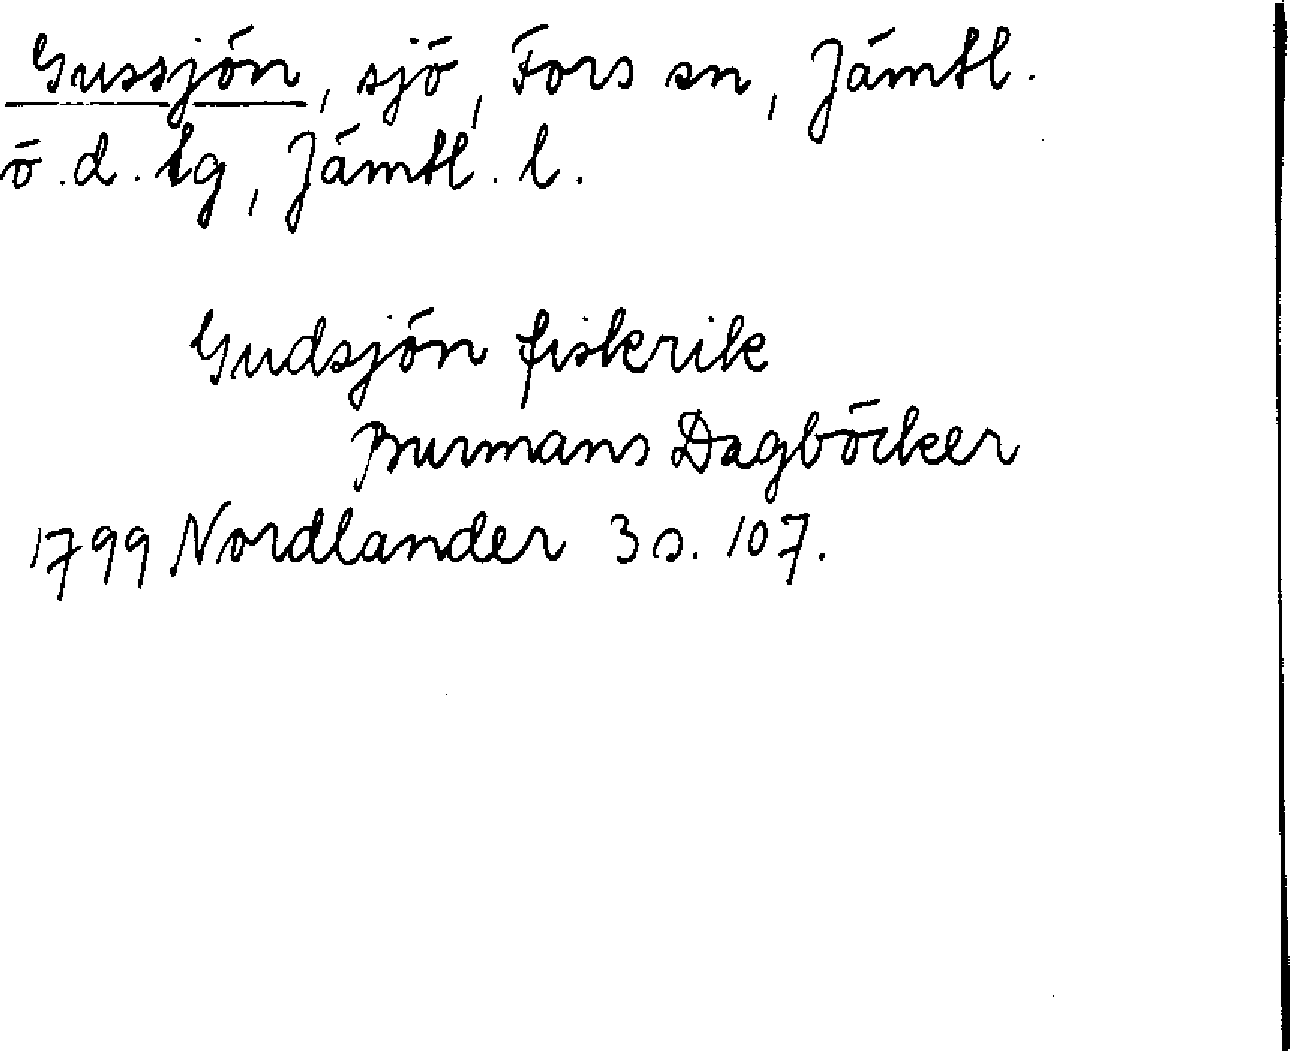 Gussjön, sjö, Fors sn, Jämtl.
ö.d. lg, Jämtl. l.
Gudsjön fiskrik
Burmans Dagböcker
1799 Nordlander 3 s. 107.